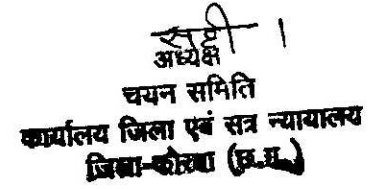 सही ।
अध्यक्ष
चयन समिति
कार्यालय जिला एवं सत्र न्यायालय
जिला-कोरबा (छ.ग.)